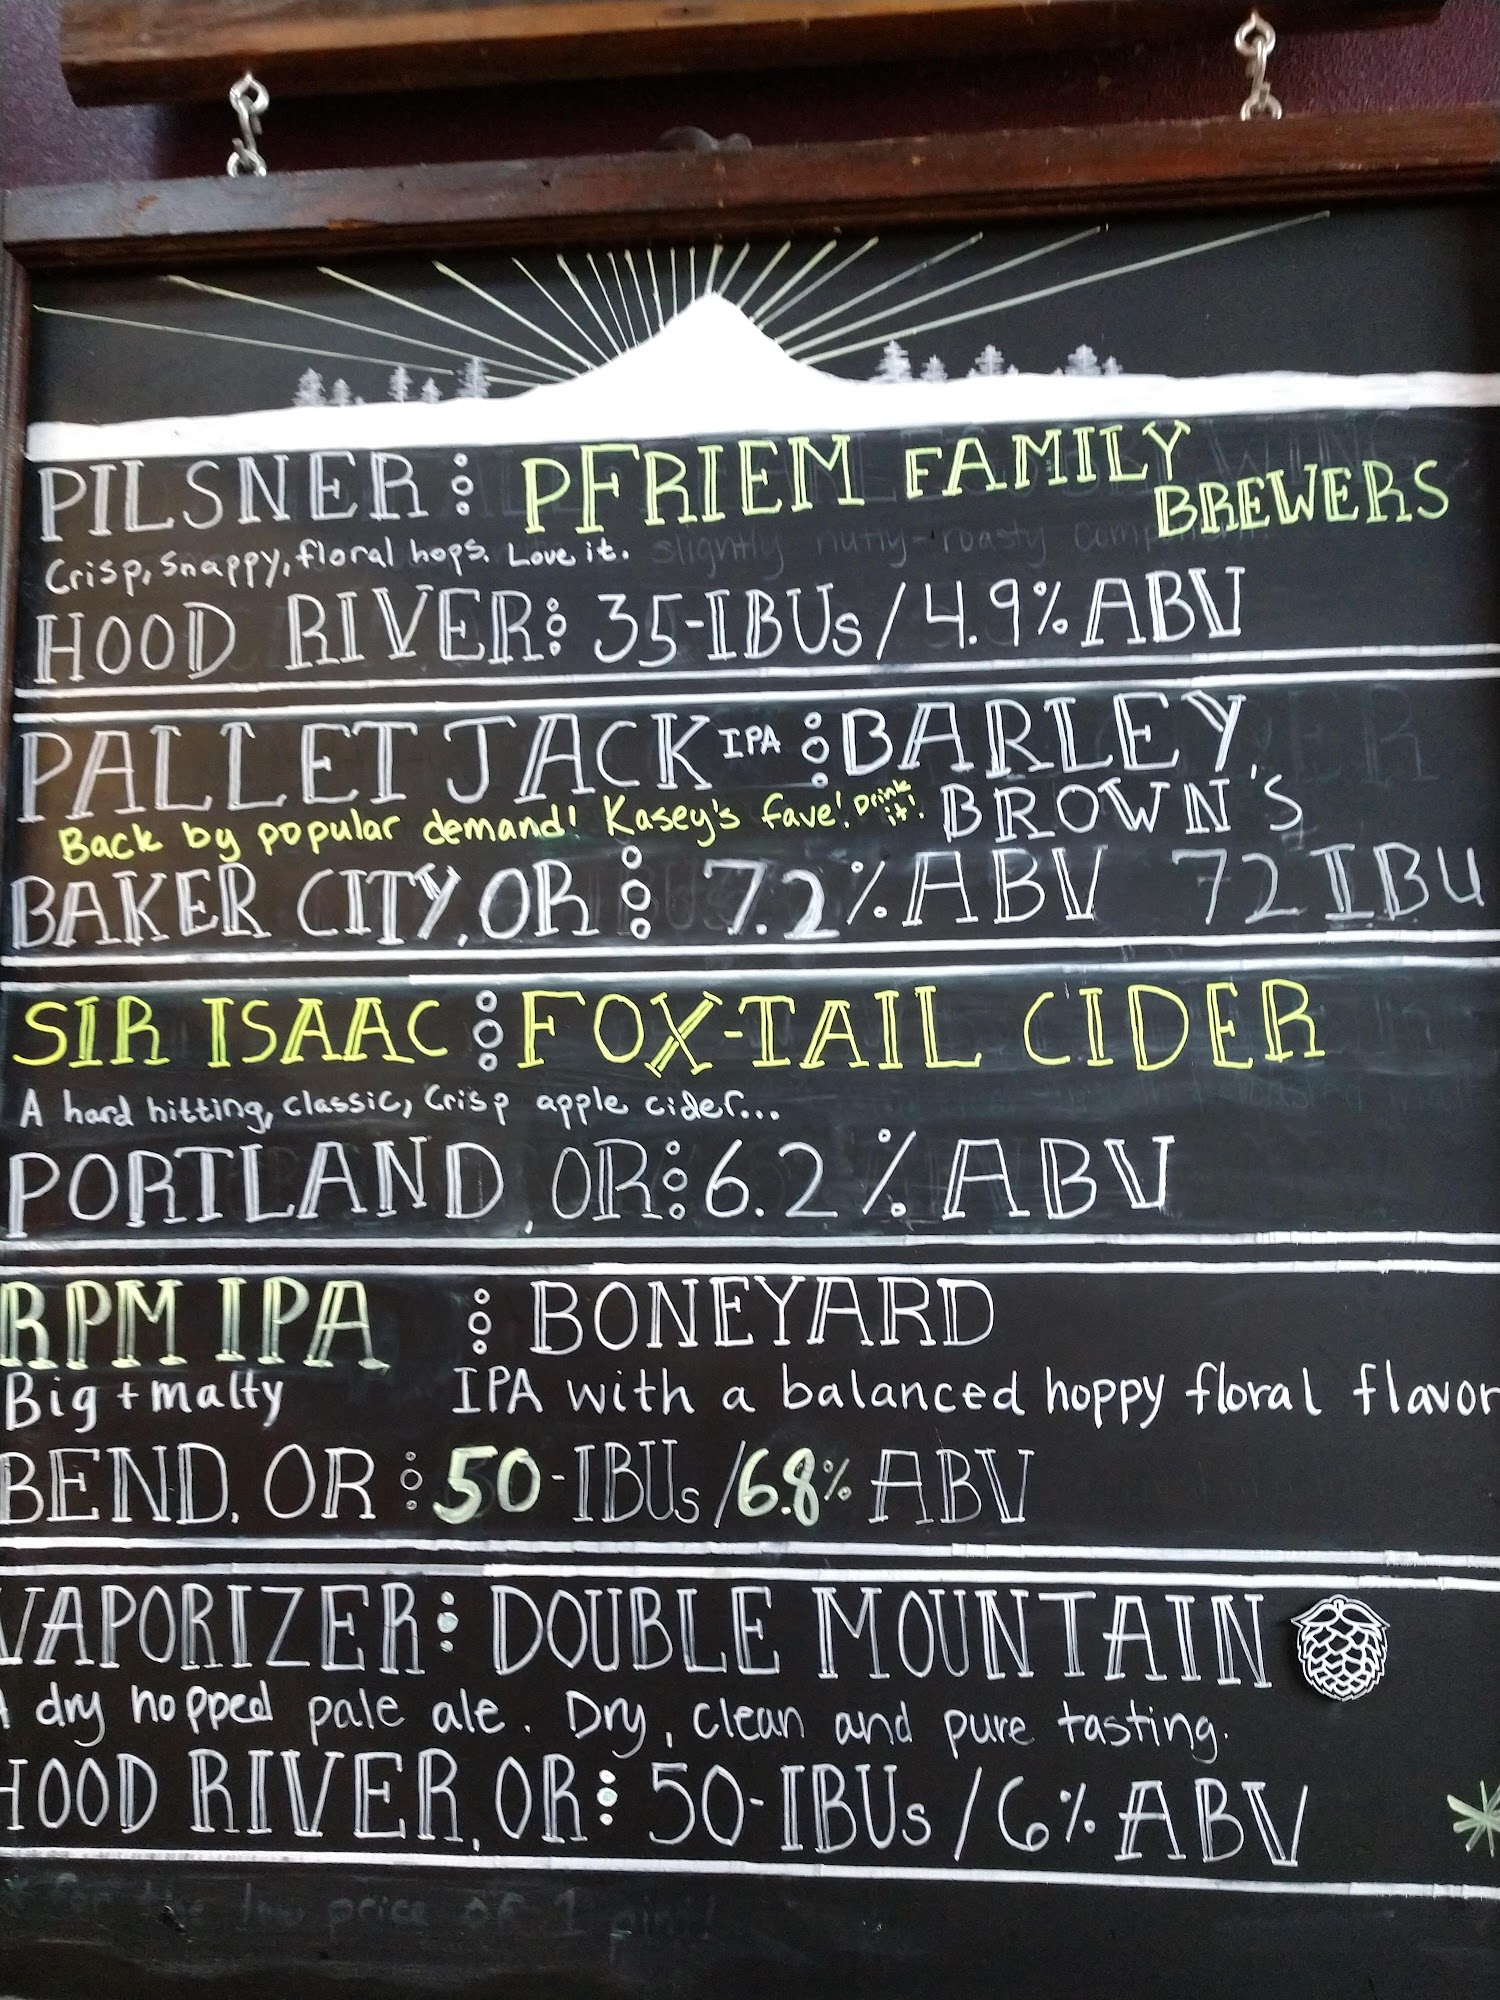 PILSNER: PFRIEM FAMILY BREWERS
Crisp, snappy, floral hops. Love it.
HOOD RIVER: 35-IBUs/4.9% ABV
PALLET JACK IPA : BARLEY
BROWN'S
Back by popular demand! Kasey's fave! Drink it!
BAKER CITY, OR : 7.2% ABV 72 IBU
SIR ISAAC : FOX-TAIL CIDER
A hard hitting, classic, crisp apple cider...
PORTLAND, OR: 6.2% ABV
RPM IPA : BONEYARD
Big + malty IPA with a balanced hoppy floral flavor
BEND, OR : 50-IBUs/6.8% ABV
VAPORIZER: DOUBLE MOUNTAIN
A dry hopped pale ale. Dry, clean and pure tasting.
HOOD RIVER, OR: 50-IBUs/6% ABV
for the low price of 1 pint!